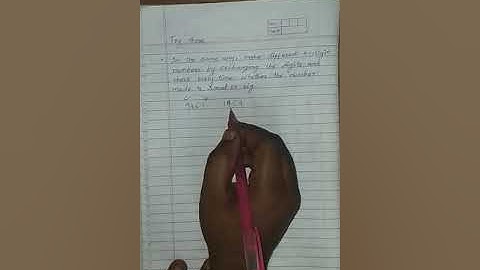 Try these
In the same way, make different 4-digit
numbers by exchanging the digits and
check every time whether the number
made is small or big.